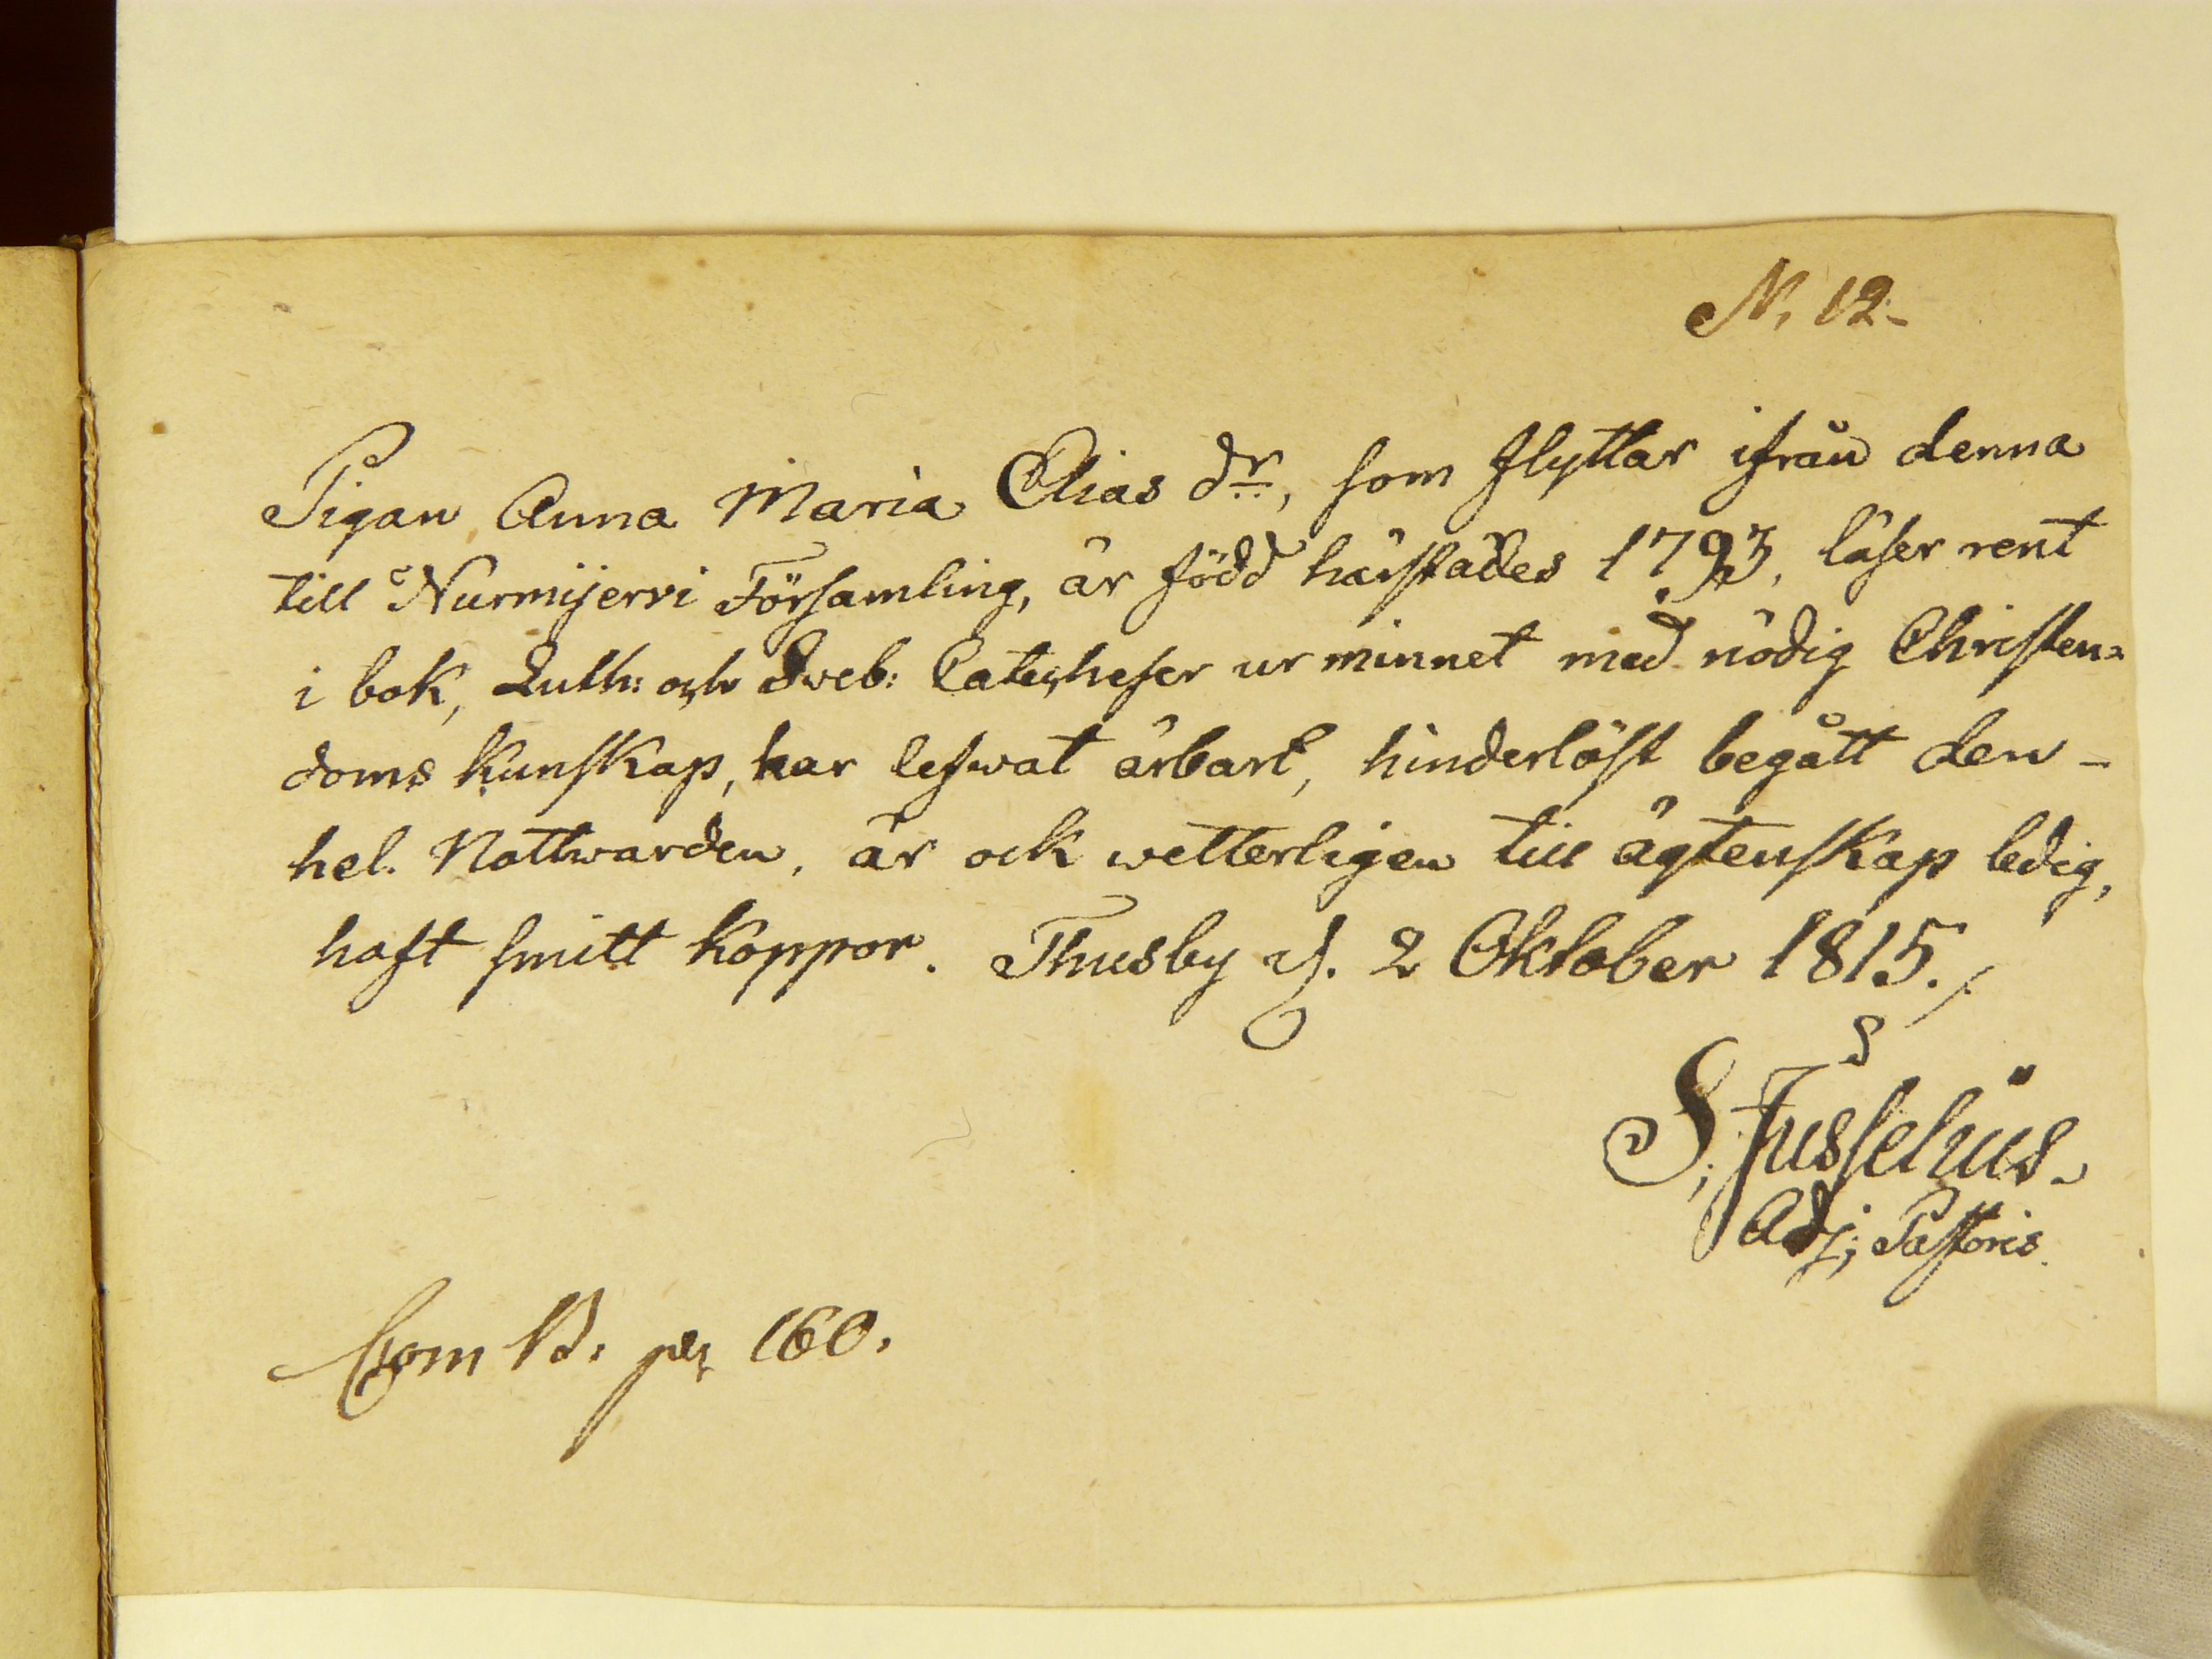 N, 12-
Pigan Anna Maria Elias dr, som flyttar ifrån denna
till Nurmijervi Församling, är född härstädes 1793, läser rent
i bok, Luth: och Sveb: Catecheser ur minnet med nödig Christen=
doms kunskap, har lefwat ärbart, hinderlöst begått den -
hel. Nattwarden, är ock wetterligen till ägtenskap ledig,
haft smitt koppor. Thusby d. 2 Oktober 1815./
S, Jusselius.
Adj; Pastoris.
Com B. pag 160.